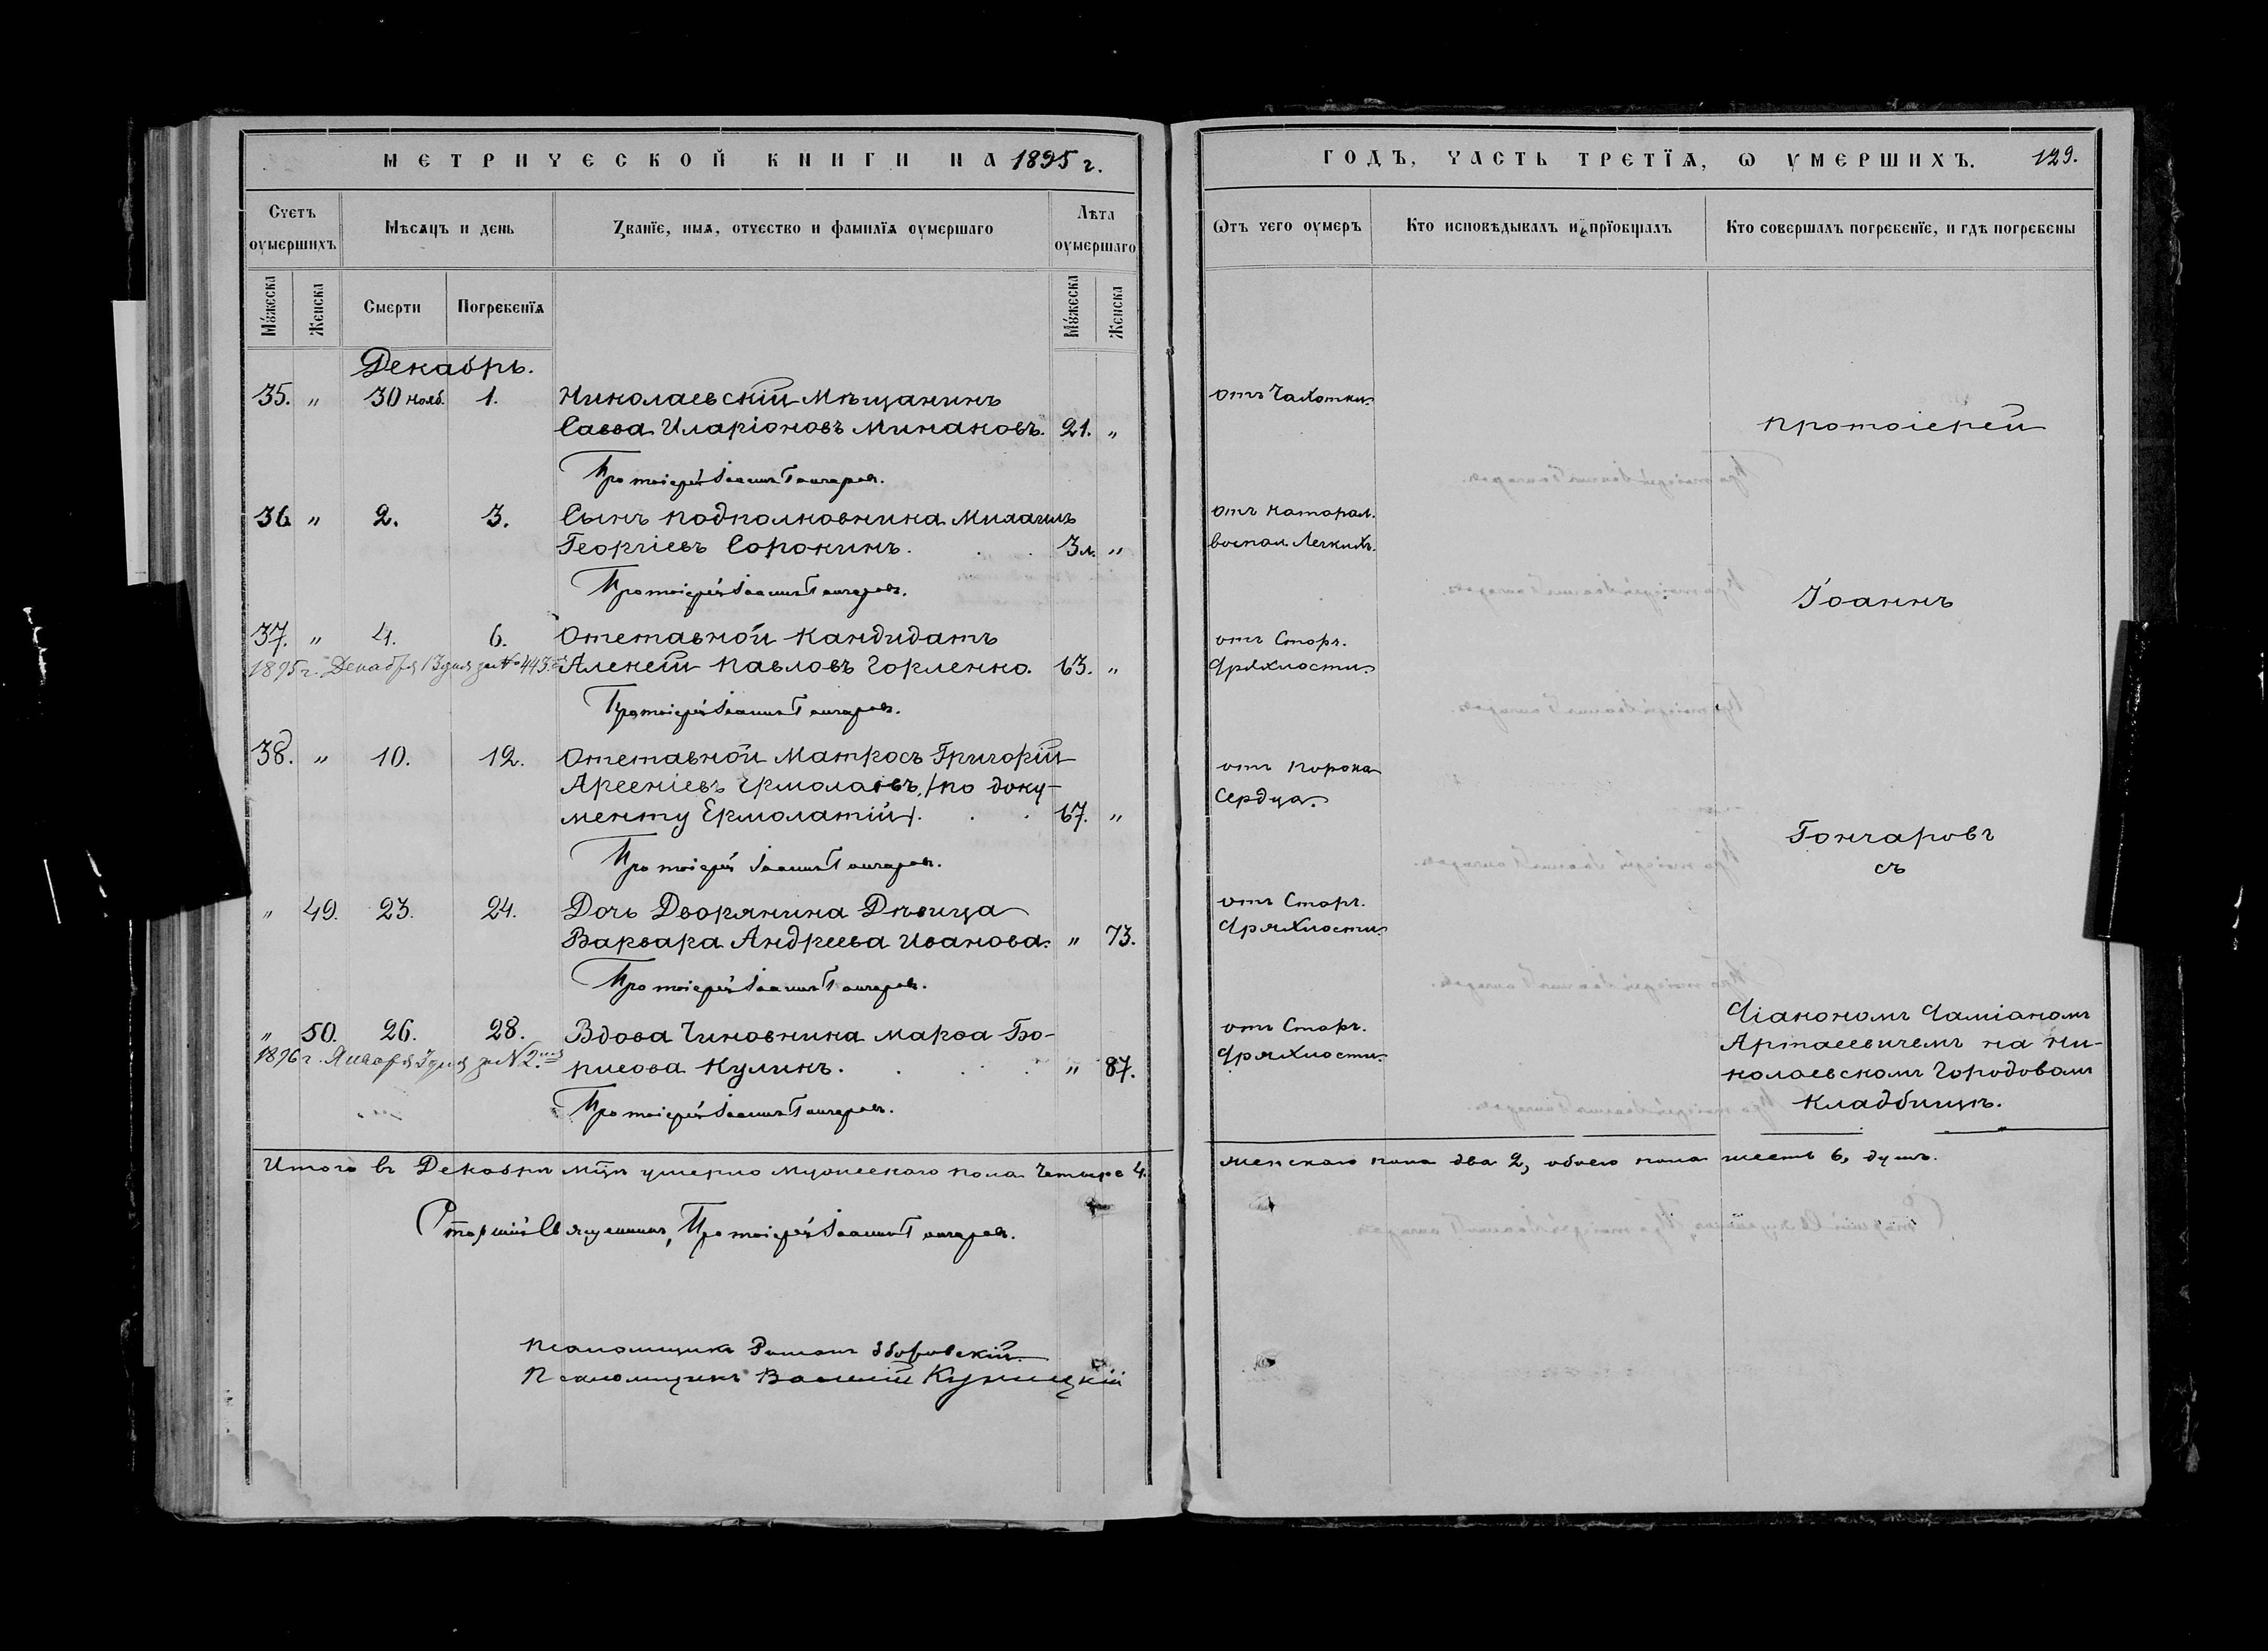 МЕТРИЧЕСКОЙ КНИГИ НА 1895 г.
Счетъ оумершихъ
Мѣсяцъ и день
Званіе, имя, отчество и фамилія оумершаго
Лѣта оумершаго
Мужеска
Женска
Смерти
Погребенія
Мужеска
Женска
Декабрь.
35. " 30 нояб. 1. Николаевскій Мѣщанинъ
Савва Иларіоновъ Минаковъ. 21. "
Протоіерей Іоаннъ Гончаровъ.
36 " 2. 3. Сынъ подполковника Михаилъ
Георгіевъ Сорокинъ. 3 л. "
Протоіерей Іоаннъ Гончаровъ.
37. " 4. 6. Отставной кандидатъ
1895 г. Декабря 13 дня за № 443. Алексѣй Павловъ Горленко. 63. "
Протоіерей Іоаннъ Гончаровъ.
38. " 10. 12. Отставной Матросъ Григорій
Арсеніевъ Ермолаевъ, /по доку-
менту Ермолатій/. 67. "
Протоіерей Іоаннъ Гончаровъ.
" 49. 23. 24. Дочь Дворянина Дѣвица
Варвара Андреева Иванова. " 73.
Протоіерей Іоаннъ Гончаровъ.
" 50. 26. 28. Вдова Чиновника Марѳа Бо-
1896 г. Января 3 дня за № 2. рисова Куликъ. " 87.
Протоіерей Іоаннъ Гончаровъ.
Итого въ Декабрѣ мцѣ умерло мужескаго пола четыре 4.
Старшій Священникъ, Протоіерей Іоаннъ Гончаровъ.
Псаломщикъ Романъ Зборовскій
Псаломщикъ Василій Куницкій
ГОДЪ, ЧАСТЬ ТРЕТІЯ, Ѡ УМЕРШИХЪ. 129.
Ѿтъ чего оумеръ
Кто исповѣдывалъ и пріобщалъ
Кто совершалъ погребеніе, и гдѣ погребены
отъ Чахотки
отъ катарал.
воспал. Легкихъ.
отъ Старч.
Дряхлости
отъ порока
Сердца.
отъ Старч.
Дряхлости
отъ Старч.
Дряхлости
протоіерей
Іоаннъ
Гончаровъ
съ
Діакономъ Даміаномъ
Артасевичемъ на Ни-
колаевскомъ Городовомъ
Кладбищѣ.
женскаго пола два 2, обоего пола шесть 6, душъ.